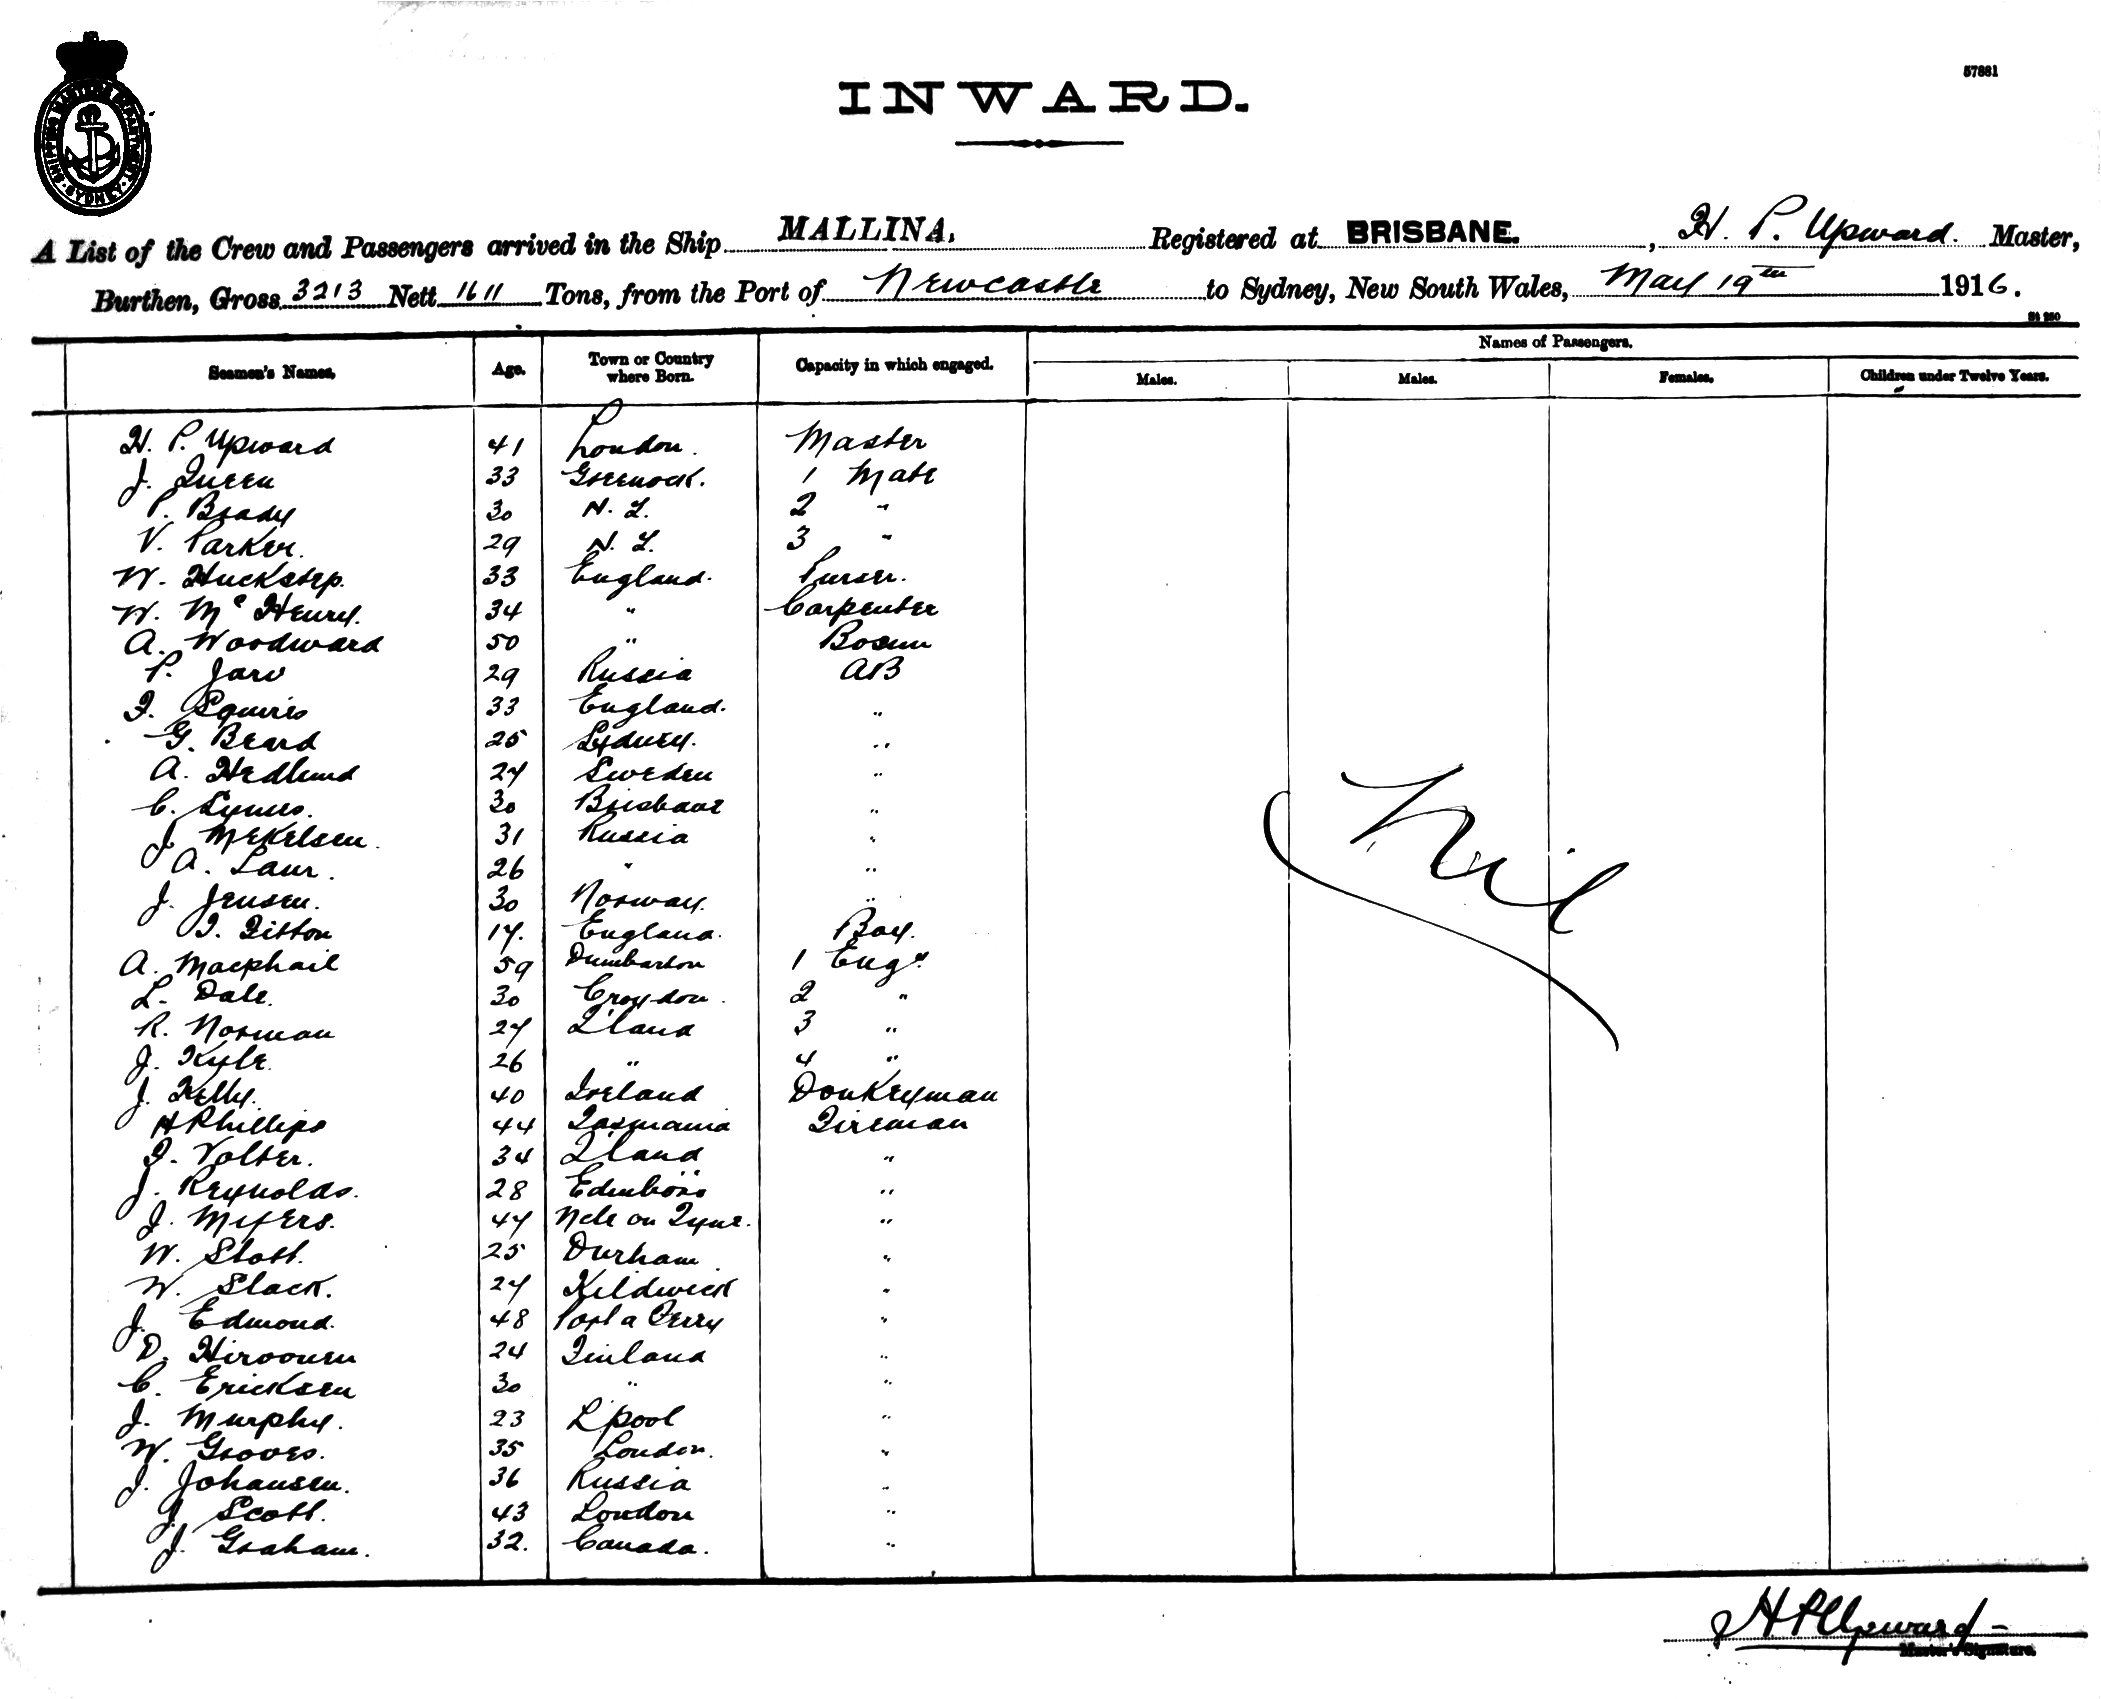 57881
SHIPPING MASTER'S DEPARTMENT
SYDNEY
INWARD.
A List of the Crew and Passengers arrived in the Ship MALLINA, Registered at BRISBANE. , H. P. Upward. Master,
Burthen, Gross 3213 Nett 1611 Tons, from the Port of Newcastle to Sydney, New South Wales, May 19th 1916.
St 250
Seamen's Names. Age. Town or Country where Born. Capacity in which engaged. Names of Passengers.
Males. Males. Females. Children under Twelve Years.
H. P. Upward 41 London. Master
J. Queen 33 Greenock. 1 Mate
P. Brady 30 N. Z. 2 "
V. Parker. 29 N. Z. 3 "
W. Huckstep. 33 England. Purser.
W. McHenry. 34 " Carpenter
A. Woodward 50 " Bosun
P. Jarv 29 Russia AB
F. Squires 33 England. "
G. Beard 25 Sydney. "
A. Hedlund 27 Sweden "
C. 30 Brisbane "
J. Mekelsen. 31 Russia "
A. Laur. 26 " "
J. Jensen. 30 Norway. "
F. Fitton 17. England. Boy.
A. Macphail 59 Dumbarton 1 Engr.
L. Dale. 30 Croydon. 2 "
R. Norman 27 Q'land 3 "
J. Kyle. 26 " 4 "
J. Kelly. 40 Ireland Donkeyman
H Phillips 44 Tasmania Fireman
F. Volter. 34 Q'land "
J. Reynolds. 28 Edinboro "
J. Myers. 47 Ncle on Tyne. "
W. Stott. 25 Durham. "
W. Slack. 27 Kildwick "
J. Edmond. 48 Port a Ferry "
D. Hirvonen 24 Finland "
C. Ericksen 30 " "
J. Murphy. 23 L'pool "
W. Groves. 35 London. "
J. Johansen. 36 Russia "
J. Scott. 43 London "
J. Graham. 32. Canada. "
Nil
H P Upward
Master's Signature.